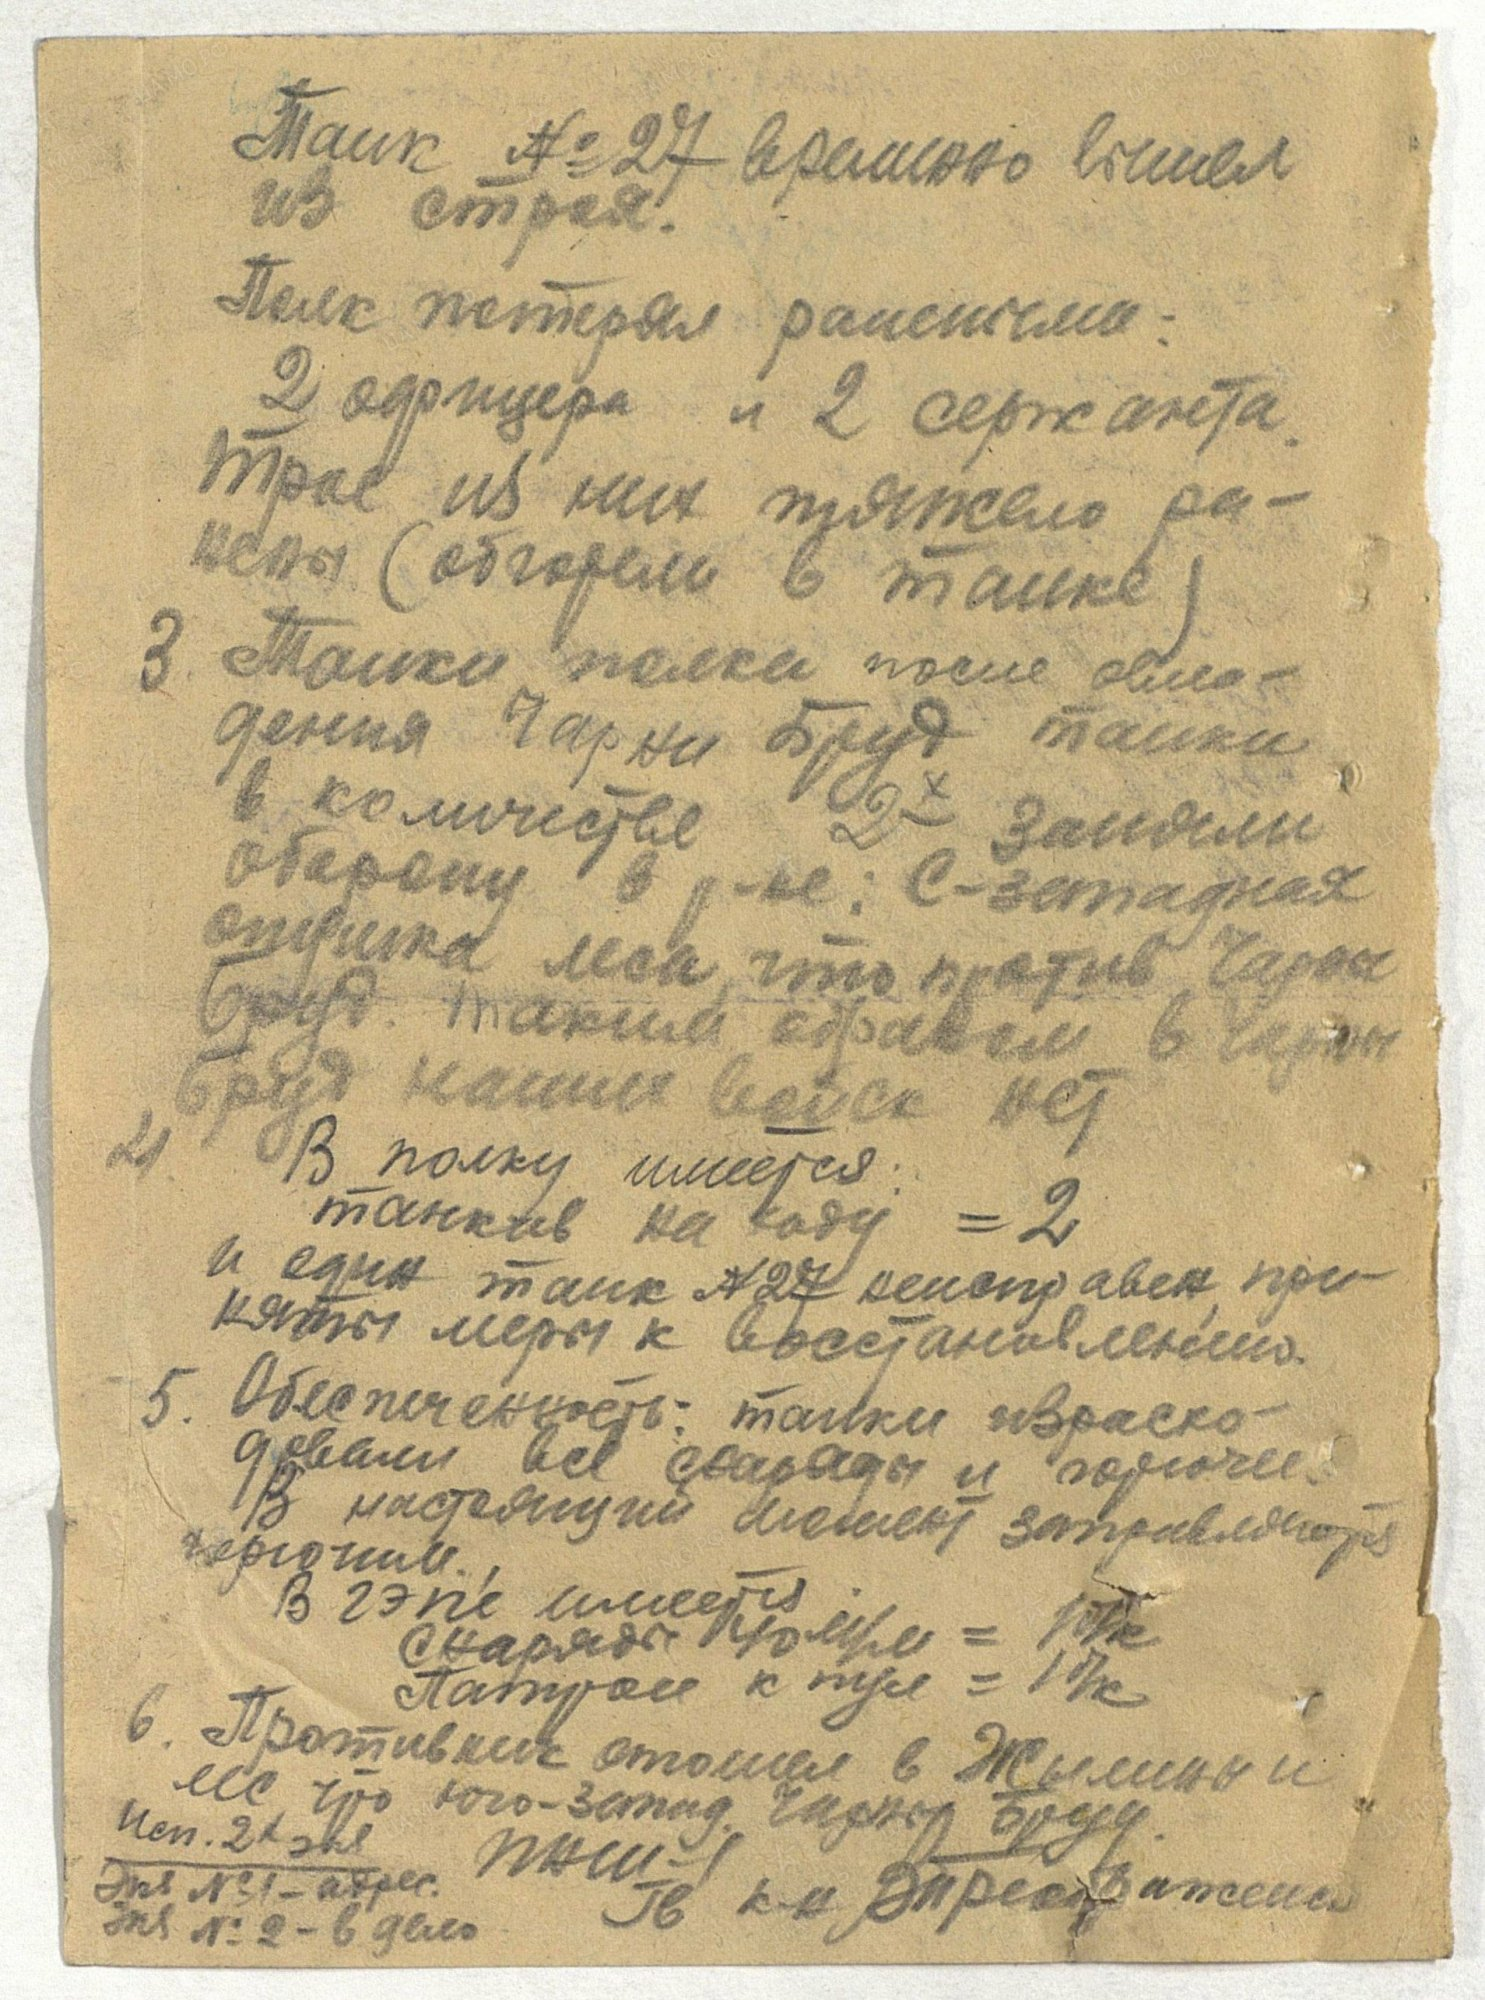 Танк № 27 временно вышел
из строя.
Полк потерял ранеными:
2 офицера и 2 сержанта.
Трое из них тяжело ра-
нены (обгорели в танке)
3. Танки полка после овла-
дения Чарны Бруд танки
в количестве 2х заняли
оборону в р-не: С-западная
опушка леса, что против Чарны
Бруд. Таким образом в Чарны
Бруд наших войск нет
4. В полку имеется:
танков на ходу = 2
и один танк № 27 неисправен, при-
няты меры к восстановлению.
5. Обеспеченность: танки израсхо-
довали все снаряды и горючее.
В настоящий момент заправляются
горючим.
В ГЭПе имеется:
снаряды м/м = 1 б/к
Патрон к пул = 1 б/к
6. Противник отошел в Жылины и
лес что юго-запад. Чарны Бруд.
Исп. 2х экз
ПНШ-1
Экз № 1 - адрес.
Гв к-н
Экз № 2 - в дело